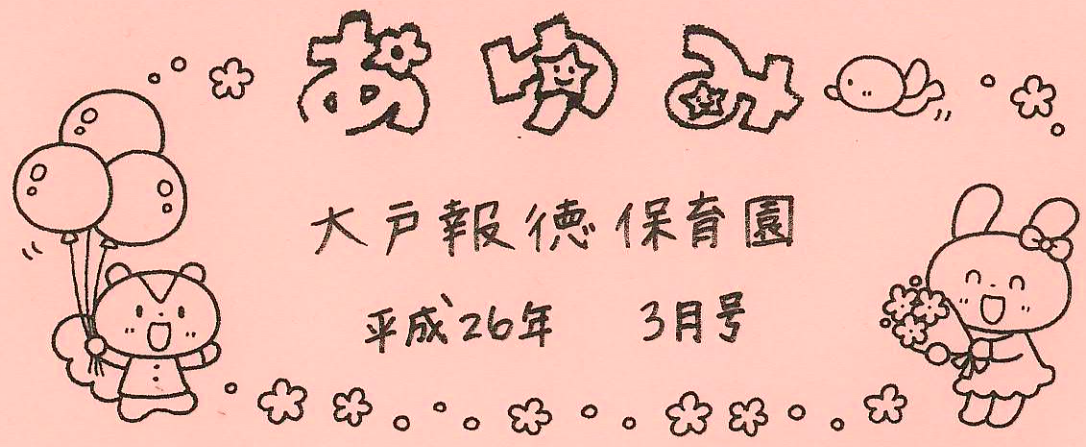 あゆみ
大戸報徳保育園
平成26年 3月号